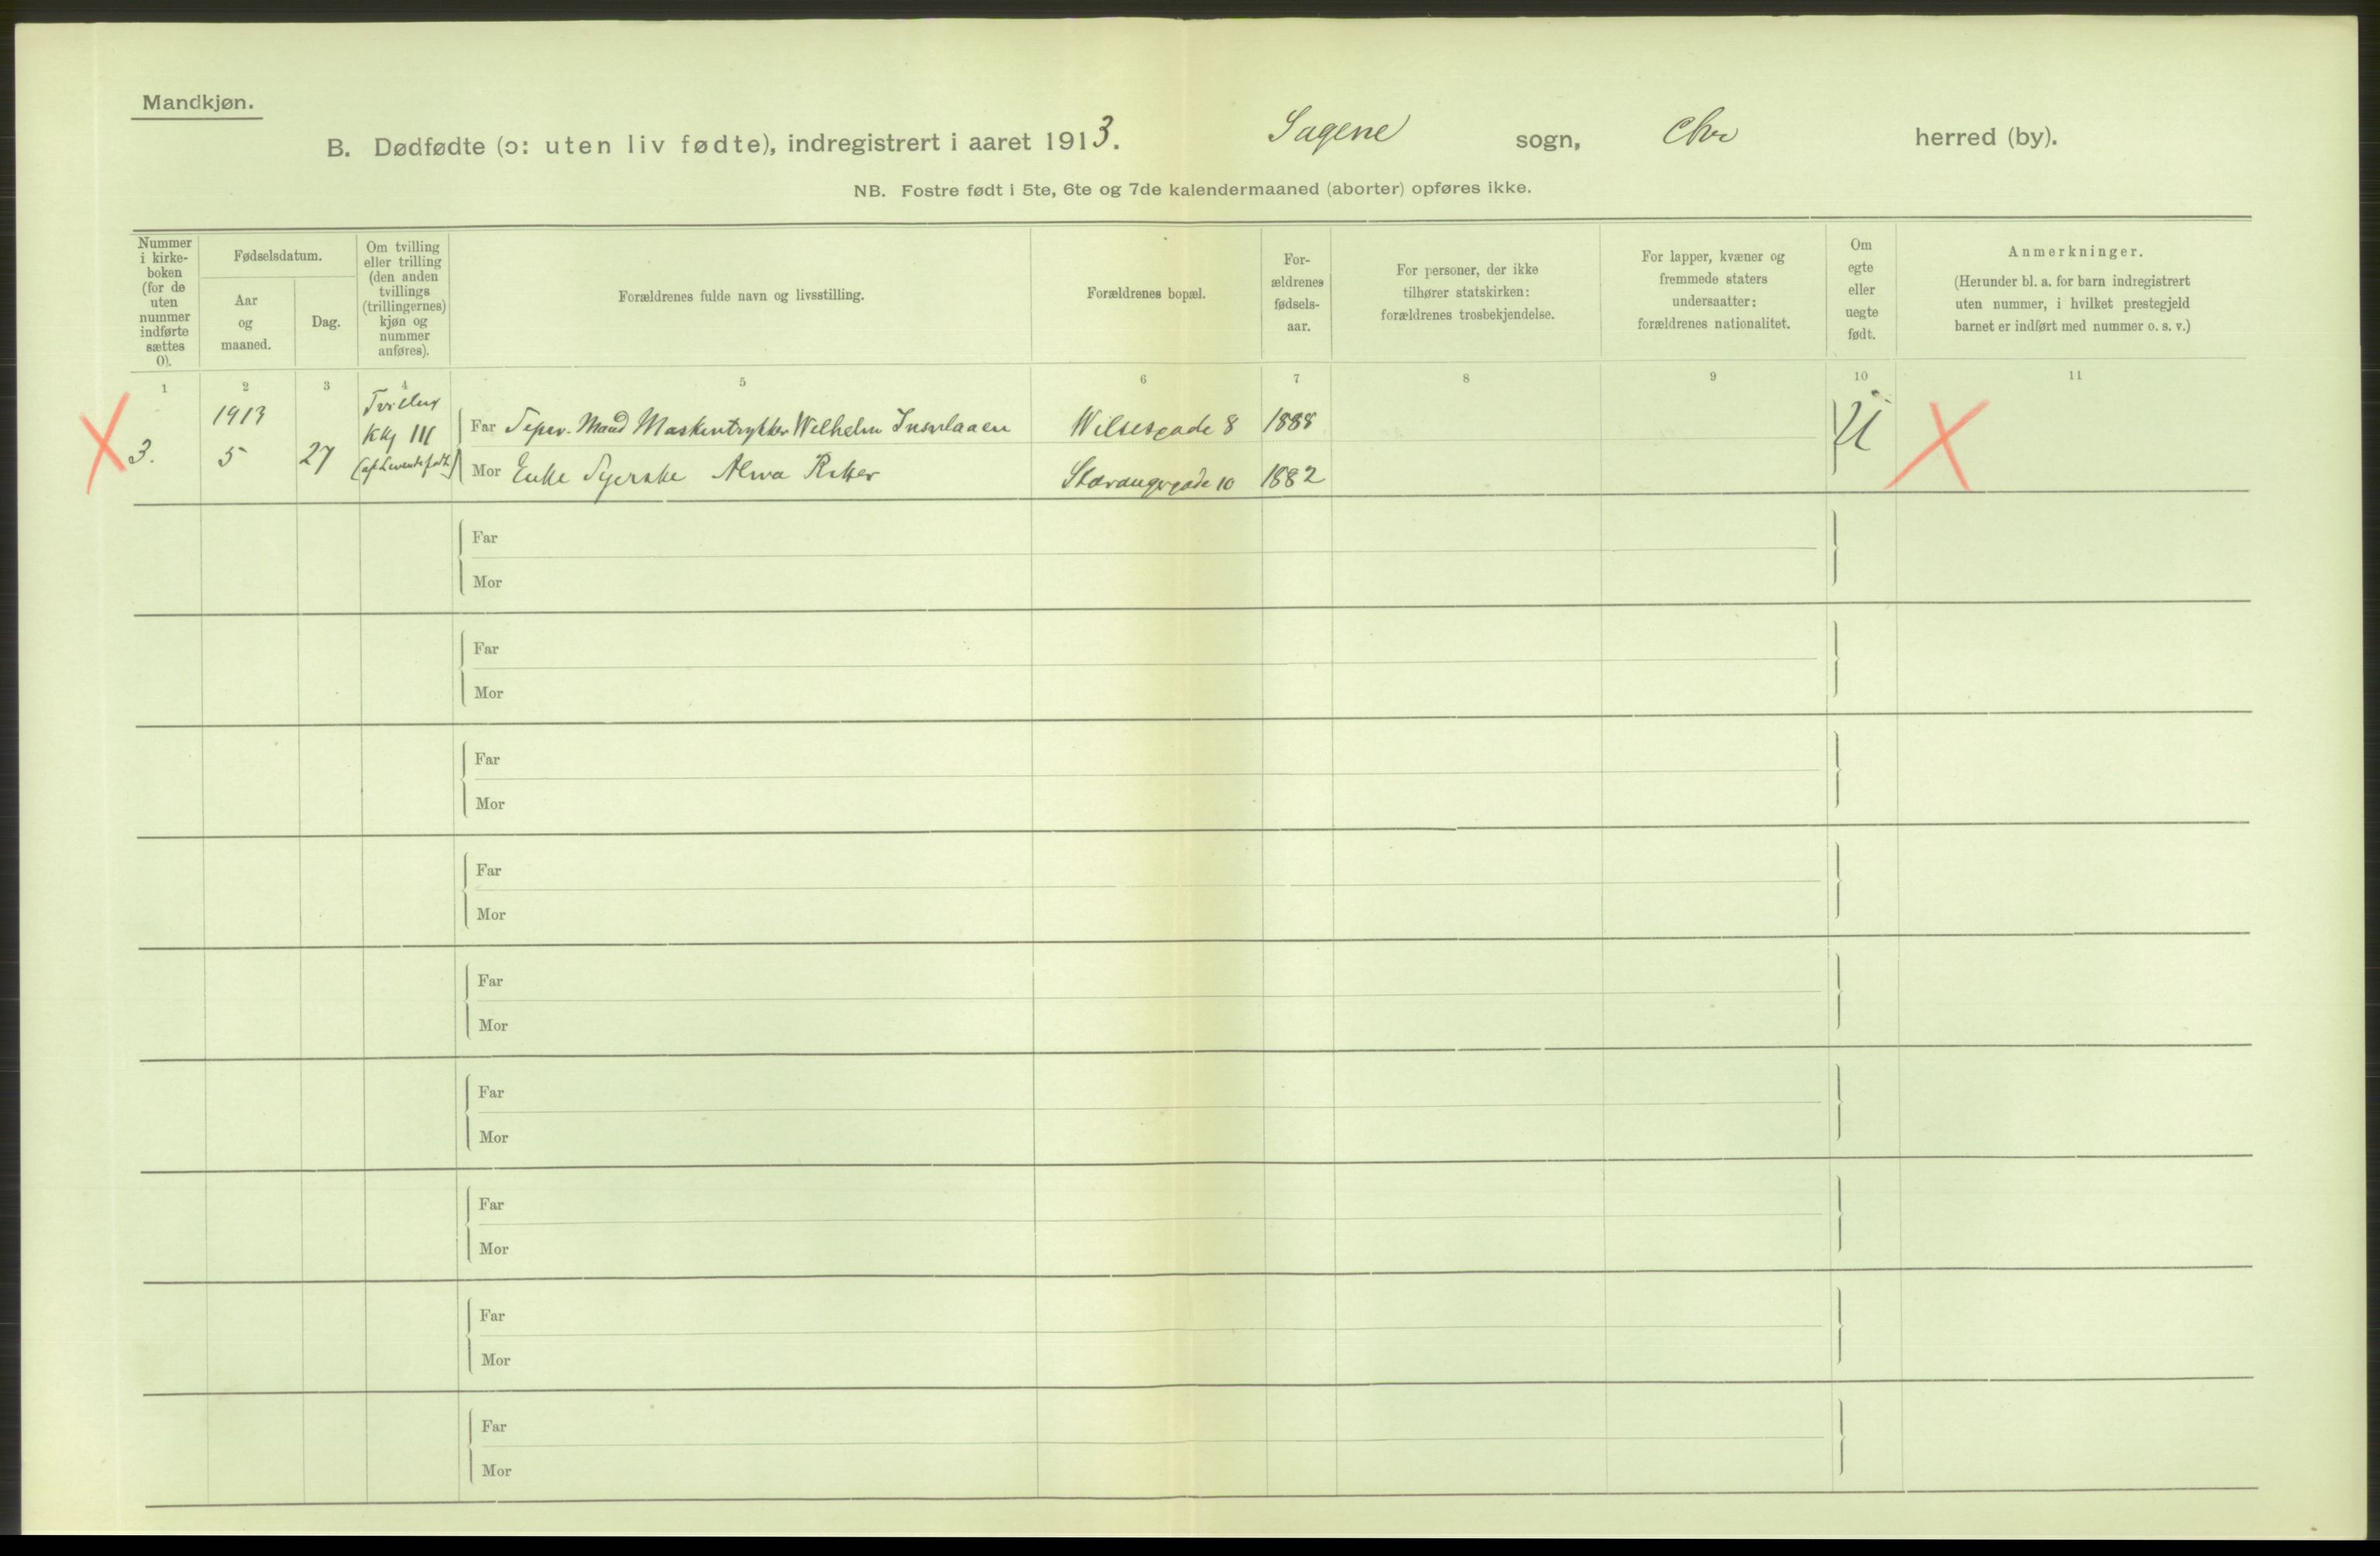 Mandkjøn.
B. Dødfødte (ɔ: uten liv fødte), indregistrert i aaret 1913. Sagene sogn, Chr herred (by).
NB. Fostre født i 5te, 6te og 7de kalendermaaned (aborter) opføres ikke.
Nummer
i kirke-
boken
(for de
uten
nummer
indførte
sættes
0).
Fødselsdatum.
Aar
og
maaned.
Dag.
Om tvilling
eller trilling
(den anden
tvillings
(trillingernes)
kjøn og
nummer
anføres).
Forældrenes fulde navn og livsstilling.
Forældrenes bopæl.
For-
ældrenes
fødsels-
aar.
For personer, der ikke
tilhører statskirken:
forældrenes trosbekjendelse.
For lapper, kvæner og
fremmede staters
undersaatter:
forældrenes nationalitet.
Om
egte
eller
uegte
født.
Anmerkninger.
(Herunder bl. a. for barn indregistrert
uten nummer, i hvilket prestegjeld
barnet er indført med nummer o. s. v.)
1 2 3 4 5 6 7 8 9 10 11
3.
1913
5
27
Far Separ. Mand Maskintrykker Wilhelm
Wilsesgade 8 1888
Mor Enke Syerske
Stavangergade 10 1882
U
Far
Mor
Far
Mor
Far
Mor
Far
Mor
Far
Mor
Far
Mor
Far
Mor
Far
Mor
Far
Mor